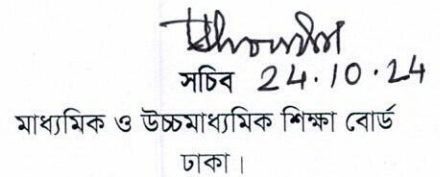 সচিব 24.10.24
মাধ্যমিক ও উচ্চমাধ্যমিক শিক্ষা বোর্ড
ঢাকা।